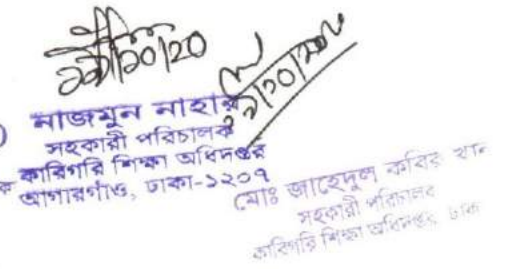 নাজমুন নাহার
সহকারী পরিচালক
কারিগরি শিক্ষা অধিদপ্তর
আগারগাঁও, ঢাকা-১২০৭
মোঃ জাহেদুল কবির খান
সহকারী পরিচালক
কারিগরি শিক্ষা অধিদপ্তর, ঢাকা